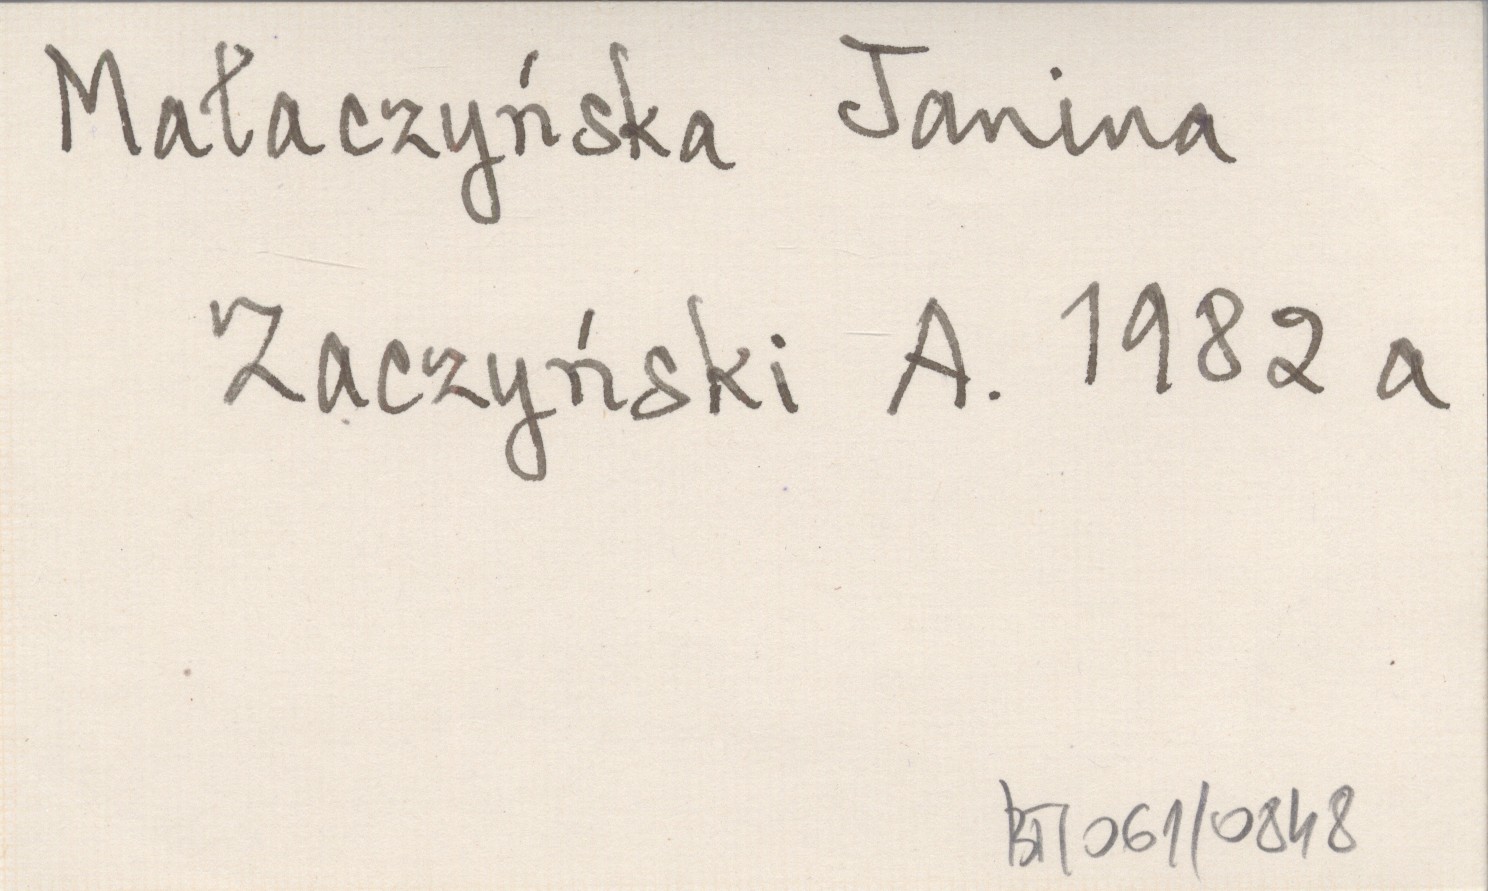 Małaczyńska Janina
Zaczyński A. 1982 a
BT/061/0848